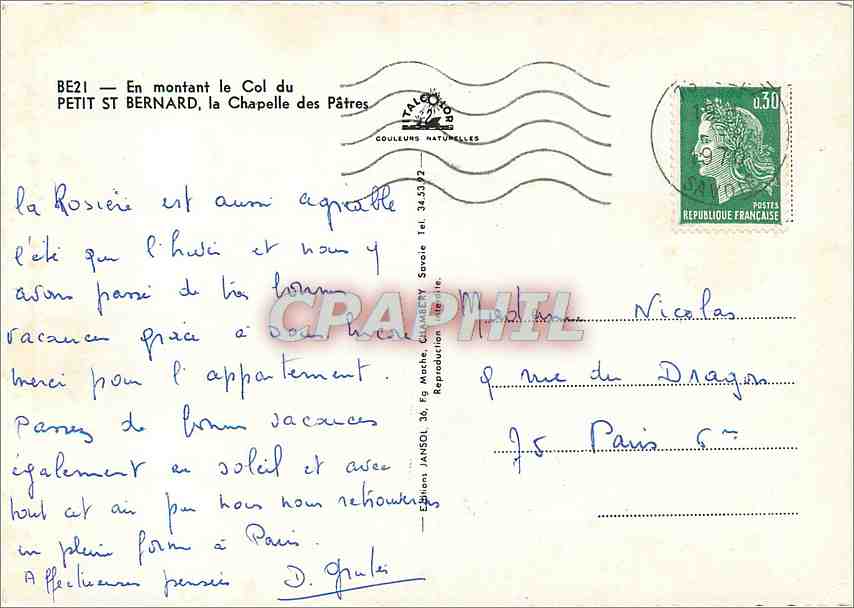 BE21 — En montant le Col du
PETIT ST BERNARD, la Chapelle des Pâtres
ITALCOLOR
COULEURS NATURELLES
0,30
1970
SAVOIE
POSTES
REPUBLIQUE FRANÇAISE
la Rosière est aussi agréable
l'été que l'hiver et nous y
avons passé de très bonnes
vacances grâce à vous. Encore
merci pour l'appartement.
Passez de bonnes vacances
également au soleil et avec
tout cet air pur nous nous retrouverons
en pleine forme à Paris.
Affectueuses pensées D.
Editions JANSOL, 36, Fg Mache, CHAMBERY Savoie Tel. 34.53.92
Reproduction interdite.
CPAPHIL
Madame Nicolas
9 rue du Dragon
75 Paris 6me